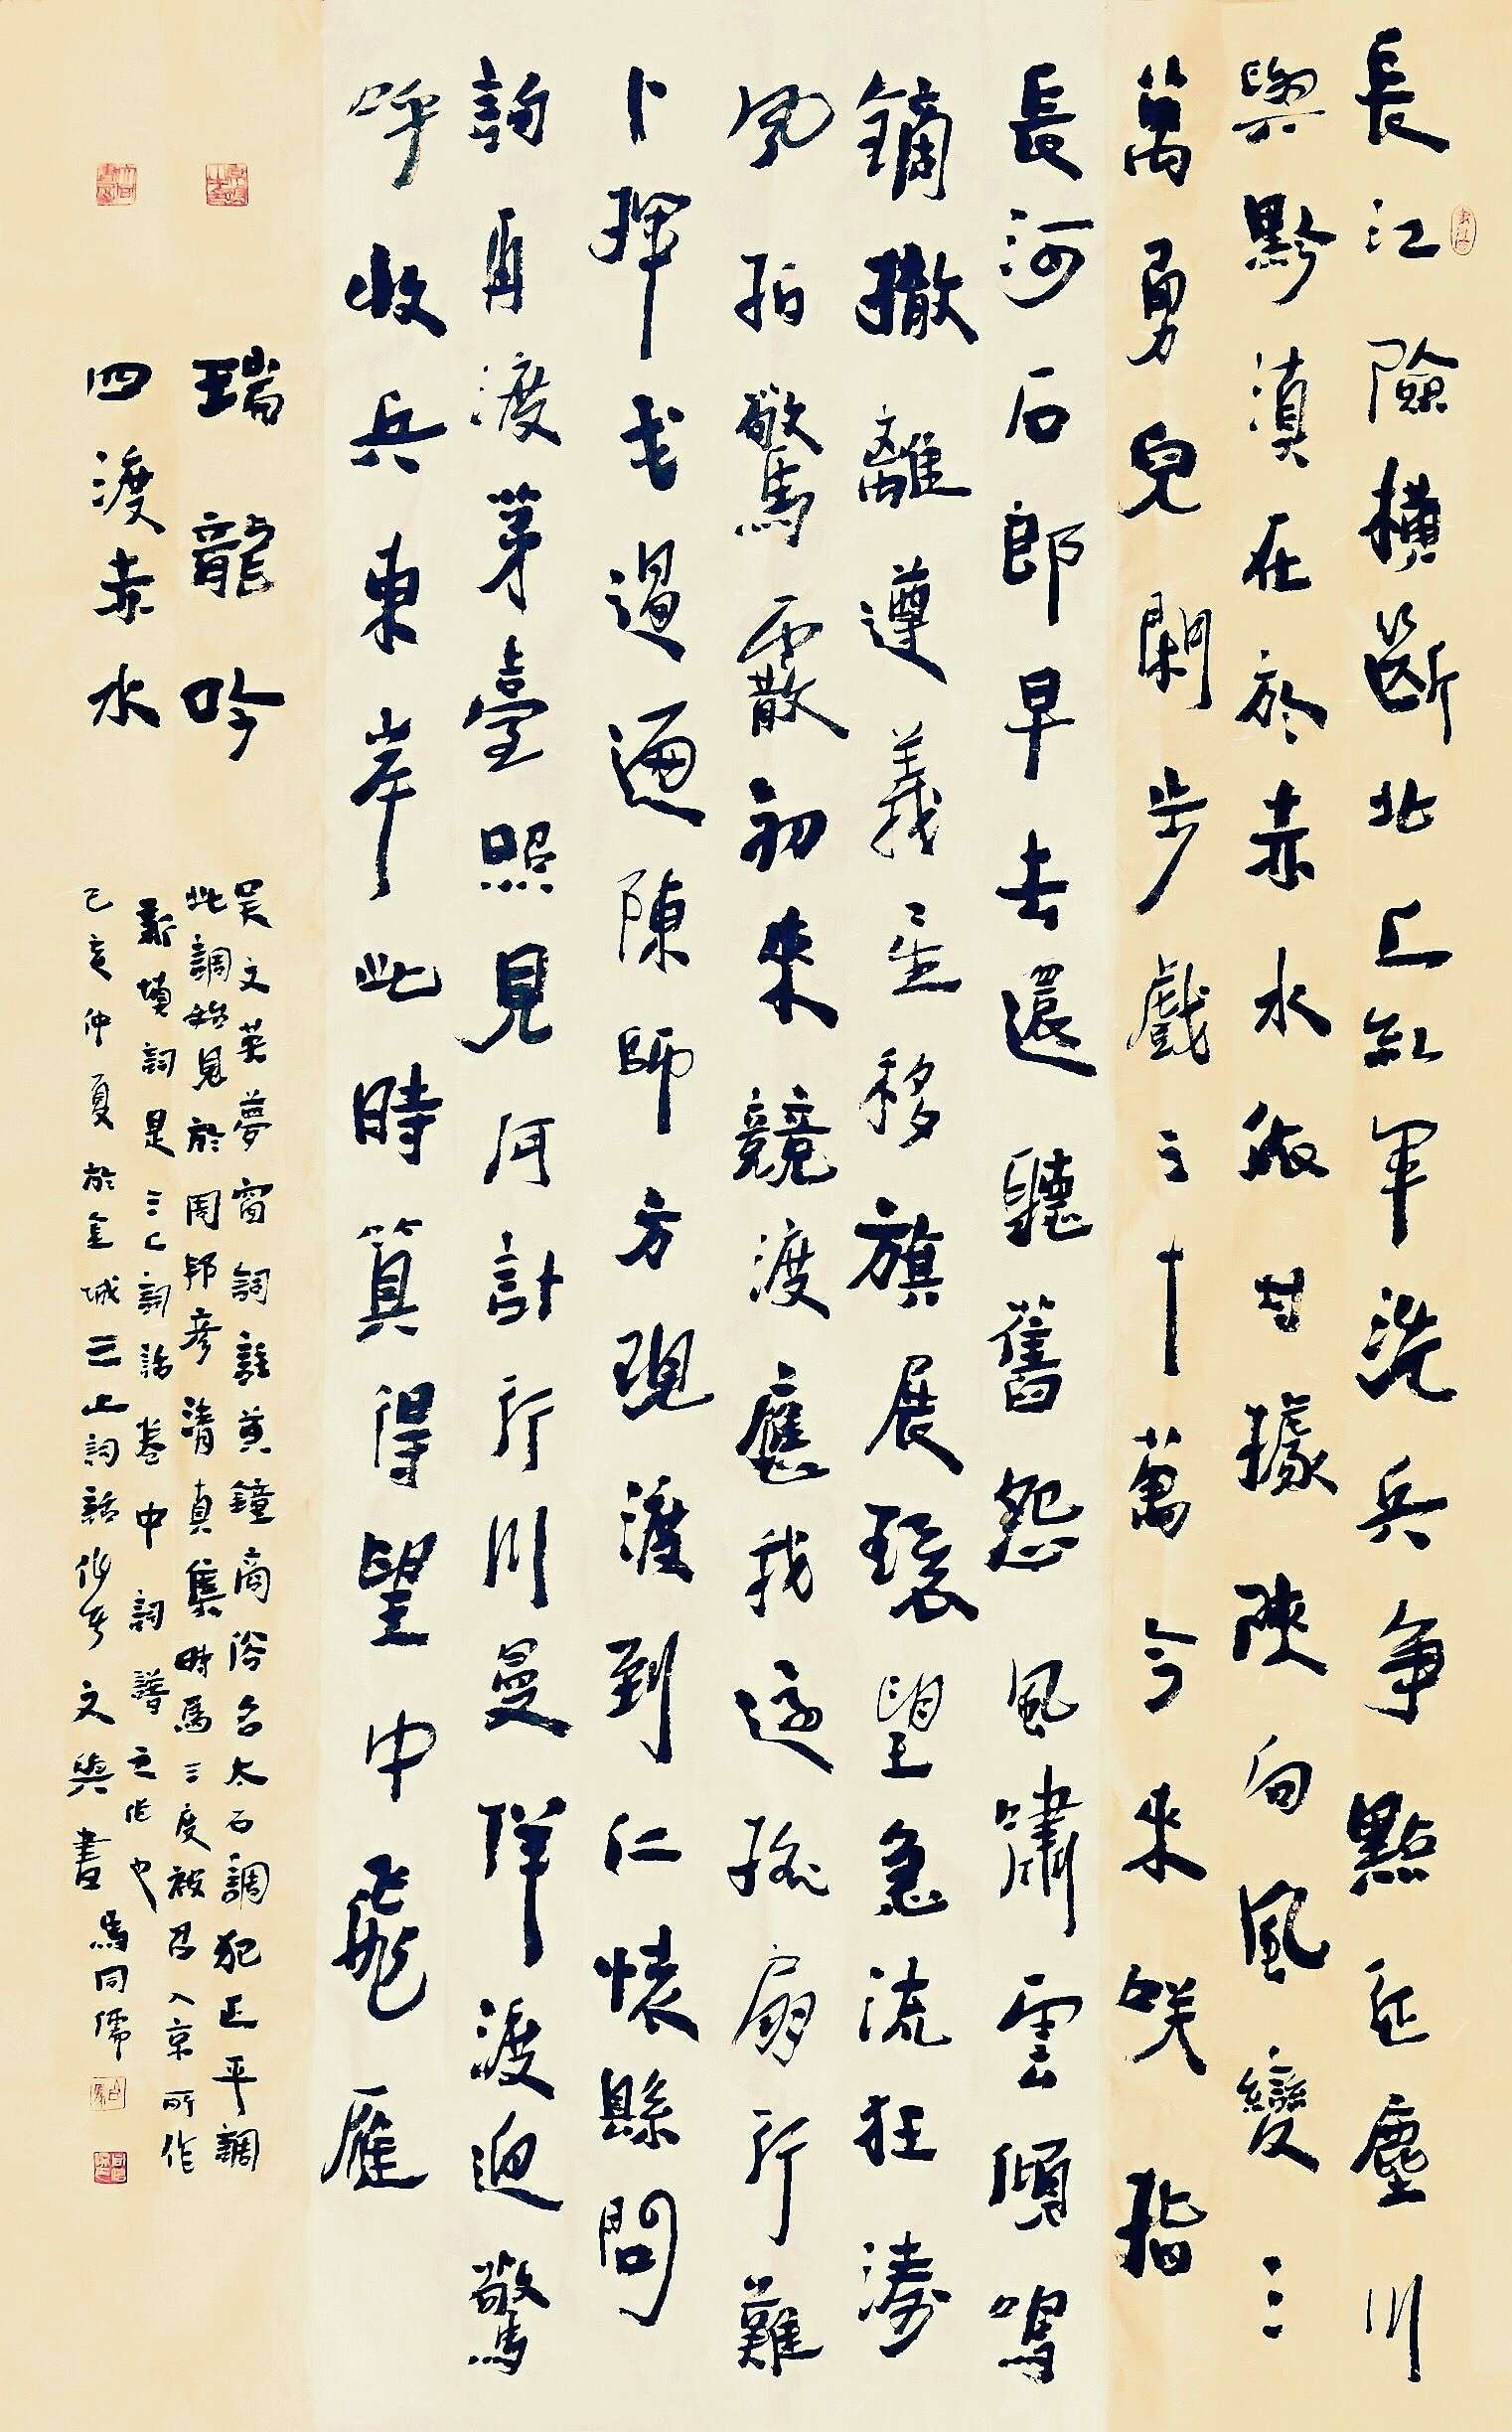 長江險橫斷北上紅軍洗兵爭點征塵川
與黔滇在於赤水依甘據陝向風變三
萬勇兒閑步戲之十萬今來咲指
長河石郎早去還聽舊怨風嘯雲傾鳴
鏑撤離遵義星移旗展環望急流狂濤
風拍驚霰初來競渡應我這搖扇行難
卜揮戈過迺陳師方現渡到仁懷縣問
詢再渡茅臺照見何計行川曼佯渡迎驚
呼收兵東岸此時算得望中飛雁
瑞龍吟
四渡赤水
吴文英夢窗詞註黄鐘商俗名太石調犯正平調
此調始見於周邦彦清真集時馬三度被召入京所作
新填詞是三乚詞話卷中詞譜之作也
己亥仲夏於金城三止詞話作者文與書馬同儒